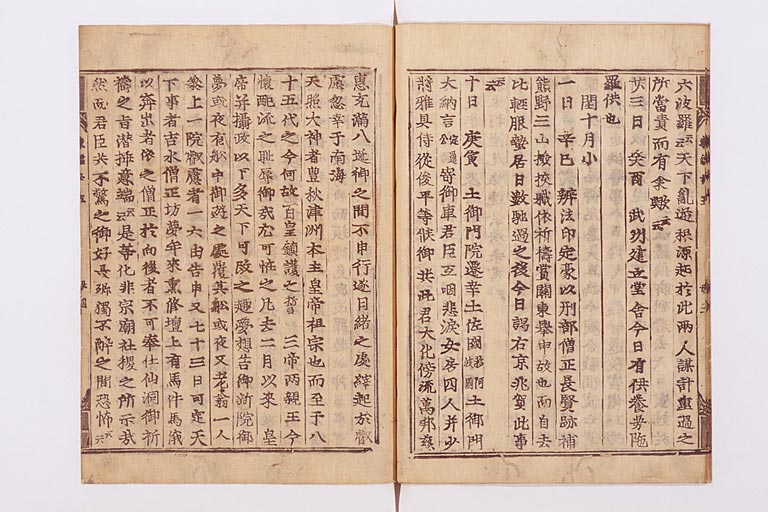 六波羅云云天下亂逆根源起於此兩人謀計重過之
所當責而有余歟云云
廿三日 癸酉 武州建立堂舍今日有供養勞陁
羅供也
閏十月小
一日 辛巳 辨法印定豪以刑部僧正長賢跡補
熊野三山撿挍職依祈禱賞關東擧申故也而自去
比輕服蟄居日數馳過之後今日謁右京兆賀此事
云云
十日 庚寅 土御門院遷幸土佐國後阿波國土御門
大納言定通 皆御車君臣互咽悲涙女房四人并少
將雅具侍從俊平等候御共此君大化傍流萬邦慈
惠充滿八埏御之間不申行逐日緒之處繹起於叡
慮忽幸于南海
天照大神者豊秋津洲本主皇帝祖宗也而至于八
十五代之今何故百皇鎭護之誓 三帝兩親王令
懷配流之耻辱御哉尤可恠之凡去二月以來 皇
帝并攝政以下多天下可改之趣夢想告御新院御
夢或夜有船中御遊之處覆其船或夜又老翁一人
參上一院叡慮者一六由告申又七十三日可定天
下事者吉水僧正坊夢年來熏修壇上有馬件馬俄
以奔出者依之僧正於向後者不可奉仕仙洞御祈
禱之旨潜揷意端云云是等化非宗廟社稷之所示哉
然而君臣共不驚之御好長卿獨不解之間恐怖云云